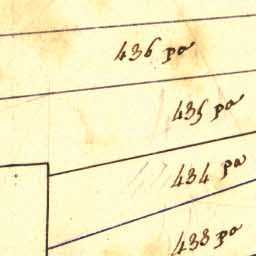 436 pa
435 pa
434 pa
433 pa